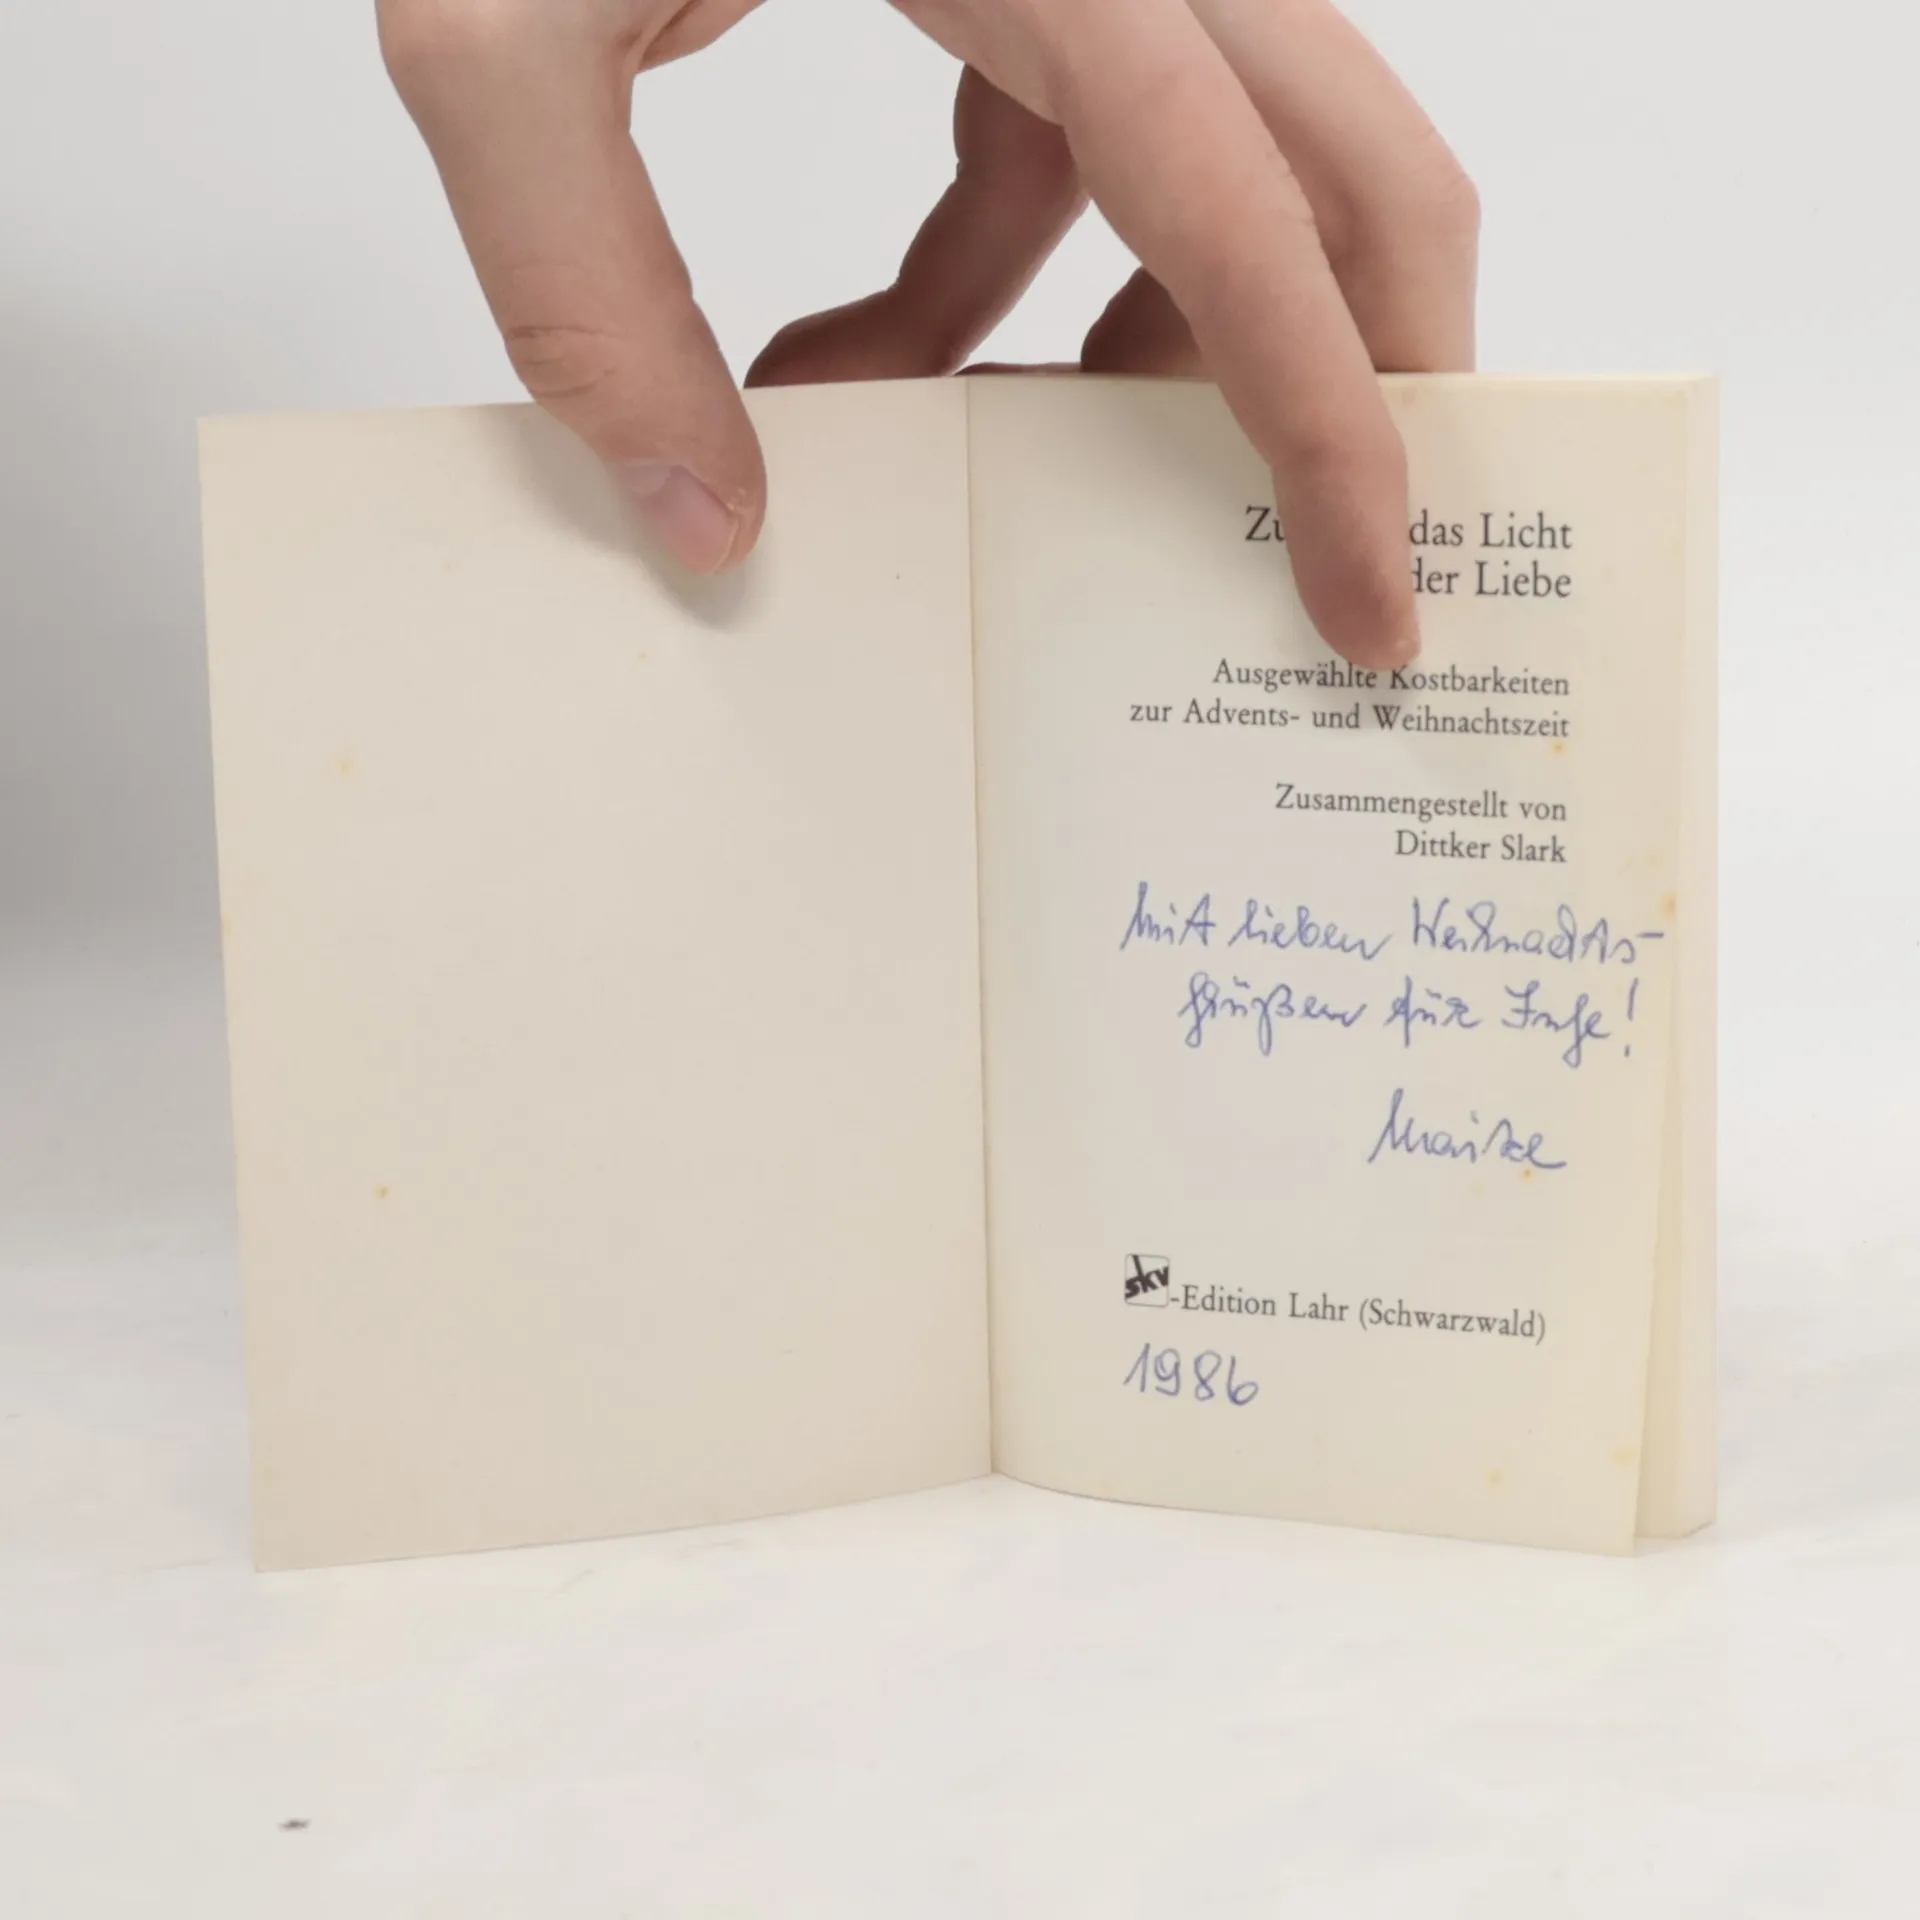 Zü das Licht
der Liebe
Ausgewählte Kostbarkeiten
zur Advents- und Weihnachtszeit
Zusammengestellt von
Dittker Slark
Mit lieben Weihnachts-
grüßen für Inge!
SKV-Edition Lahr (Schwarzwald)
1986